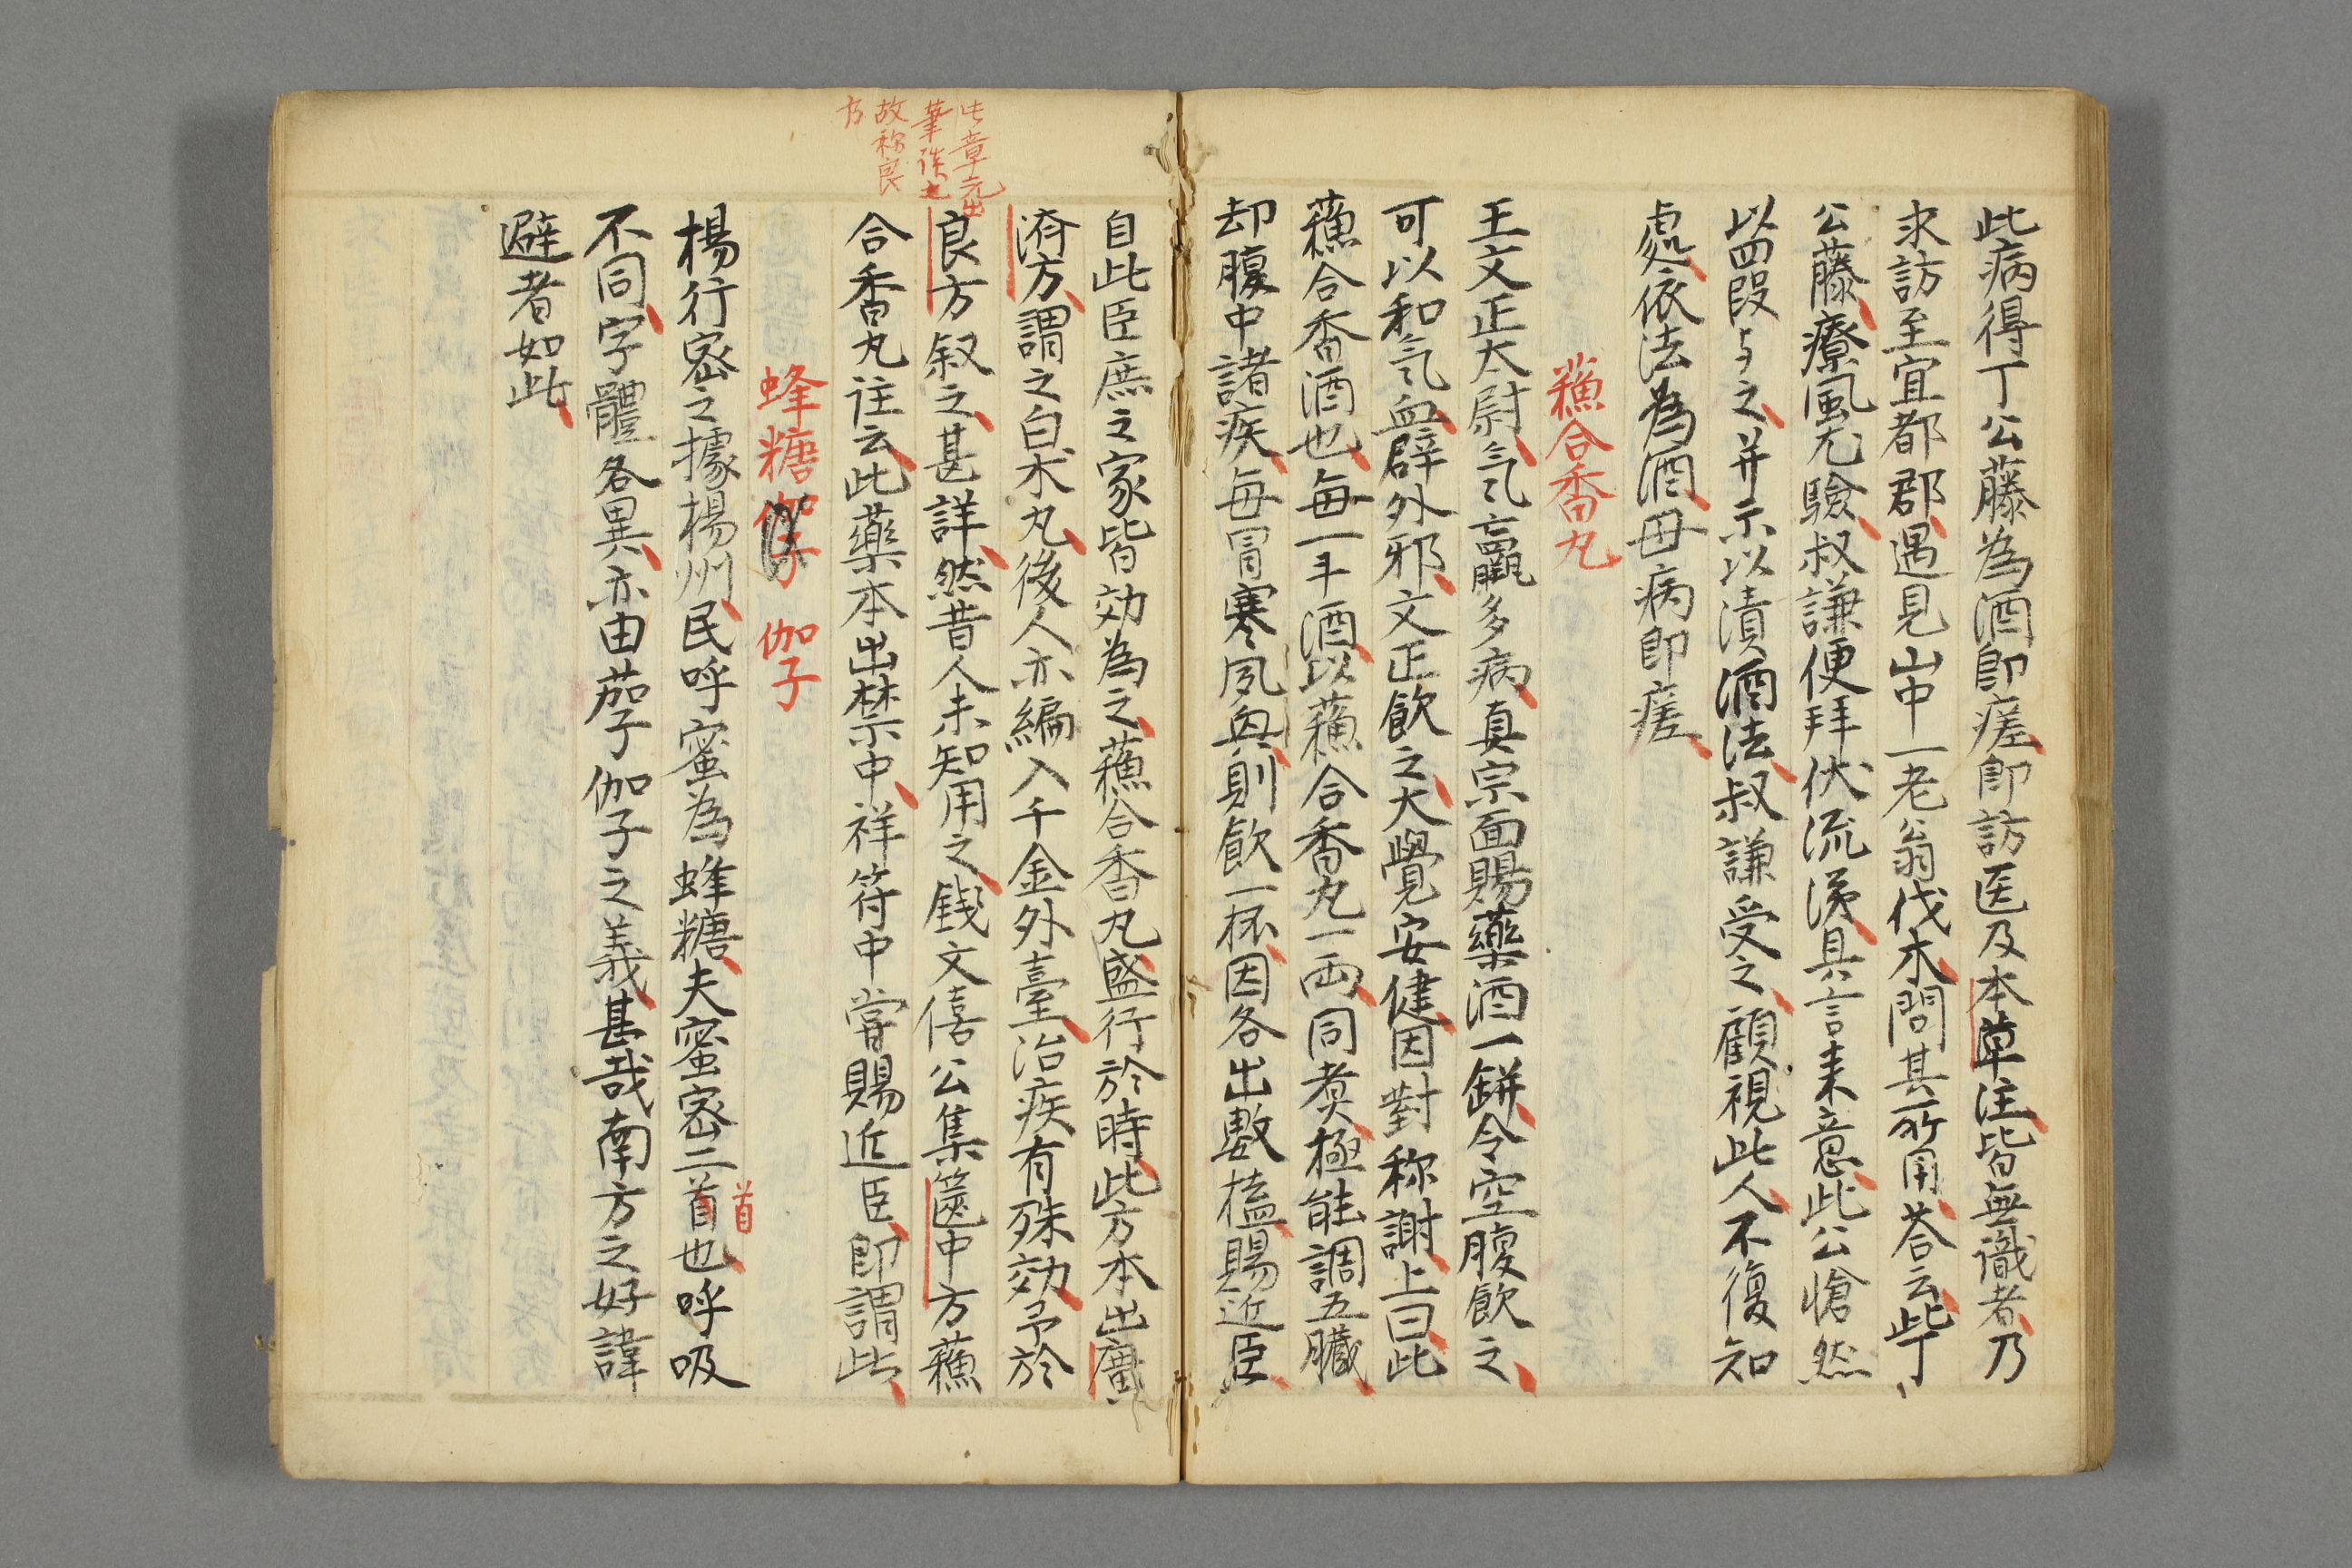 此病得丁公藤為酒即瘥即訪医及本草注皆無識者乃
求訪至宜都郡遇見山中一老翁伐木問其所用荅云此丁
公藤療風尤驗叔謙便拜伏流涕具言来意此公愴然
以四段与之并示以漬酒法叔謙受之顧視此人不復知
處依法為酒母病即瘥
蘓合香丸
王文正太尉気羸多病真宗面賜藥酒一缾令空腹飲之
可以和気血辟外邪文正飲之大覺安健因對称謝上曰此
蘓合香酒也每一斗酒以蘓合香丸一両同煑極能調五臓
却腹中諸疾每冐寒夙興則飲一杯因各出數榼賜近臣
自此臣庶之家皆効為之蘓合香丸盛行於時此方本出廣
濟方謂之白朮丸後人亦編入千金外臺治疾有殊効予於
良方叙之甚詳然昔人未知用之錢文僖公集篋中方蘓
合香丸注云此藥本出禁中祥符中甞賜近臣即謂此
此章元出
筆談也
故称良
方
蜂糖 伽子
楊行密之據楊州民呼蜜為蜂糖夫蜜密二首也呼吸
首
不同字體各異亦由茄子伽子之義甚哉南方之好諱
避者如此